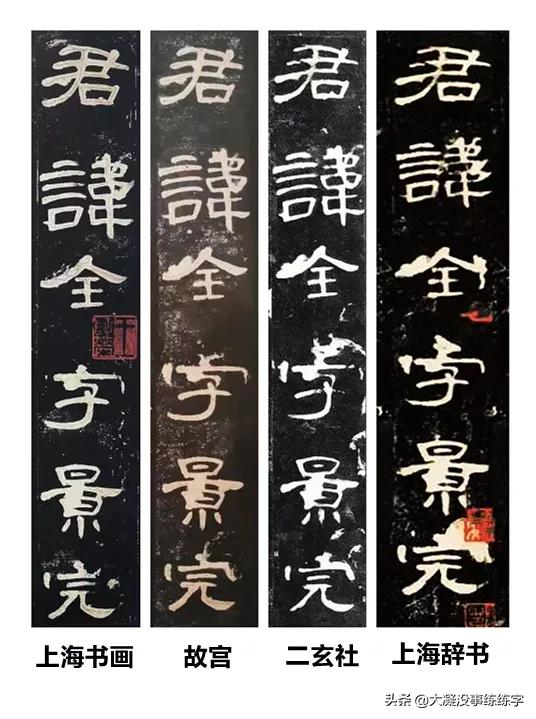 君諱全字景完
君諱全字景完
君諱全字景完
君諱全字景完
上海书画
故宫
二玄社
上海辞书
头条 @大凝没事练练字